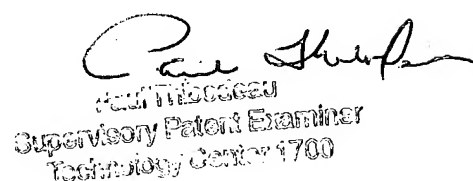 Paul Thibodeau
Supervisory Patent Examiner
Technology Center 1700